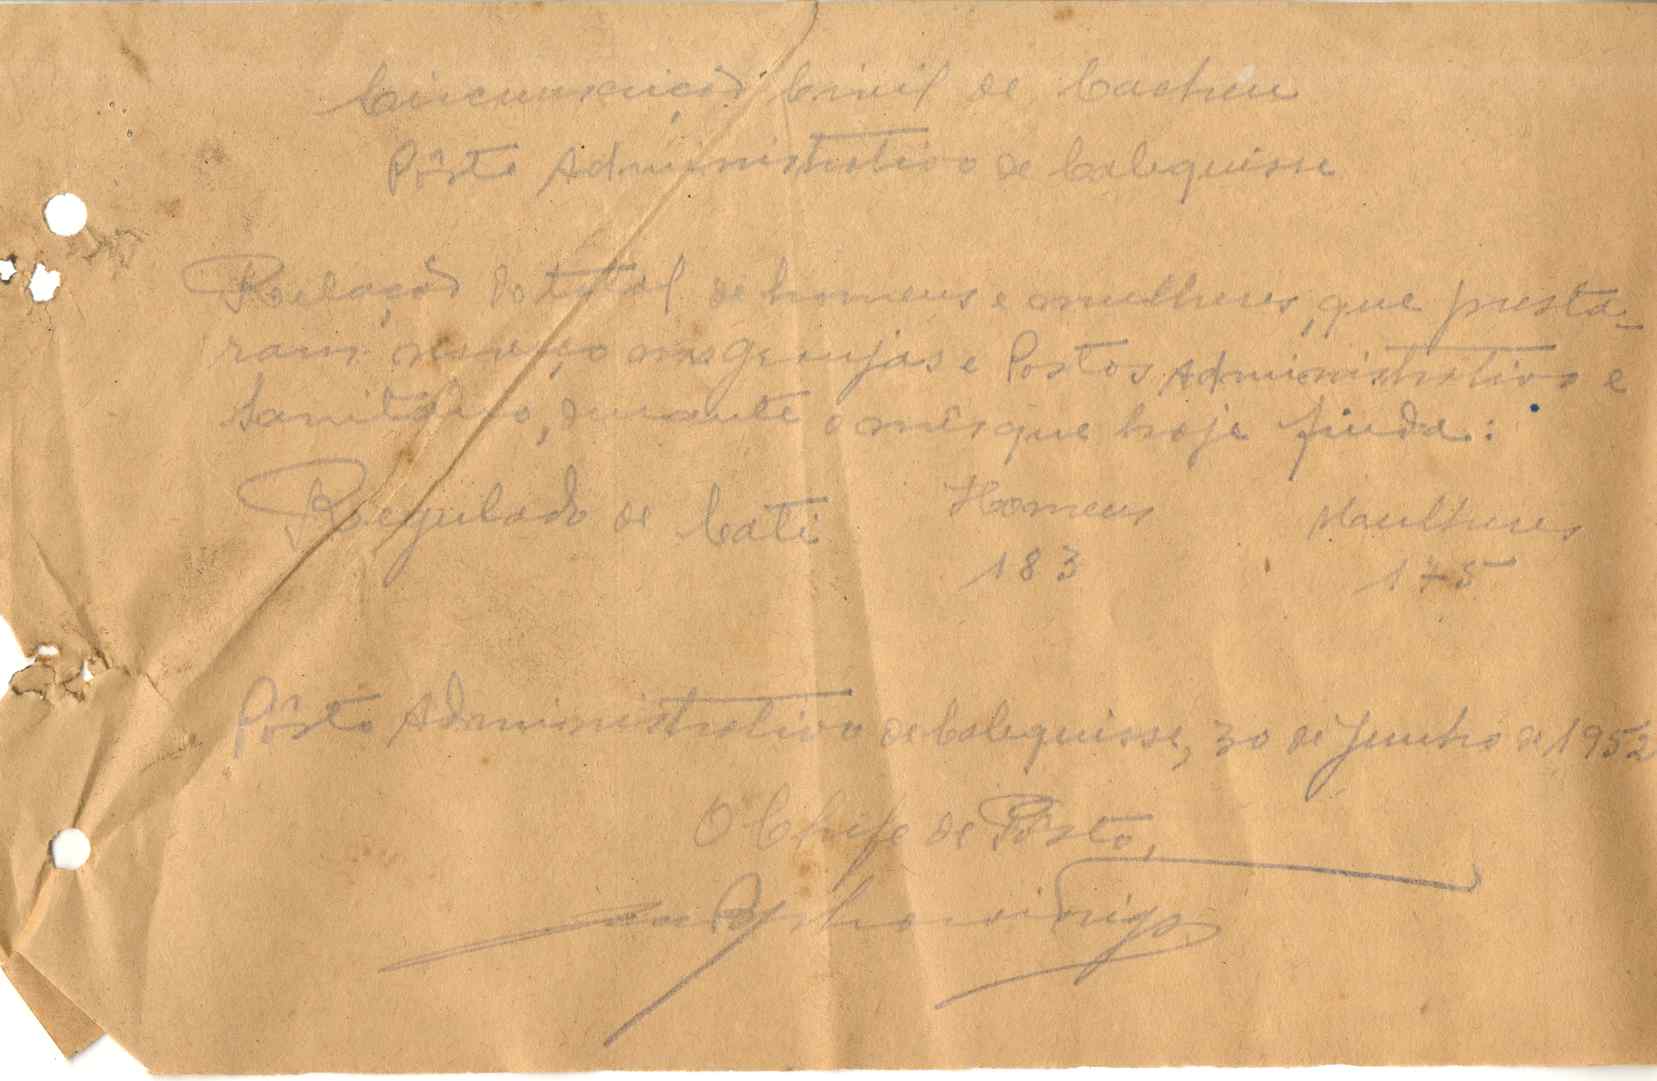 Circunscrição Civil de Cacheu
Pôsto Administrativo de Calequisse
Relação do total de homens e mulheres, que presta-
ram serviço nas granjas e Postos Administrativo e
Sanitário, durante o mês que hoje finda:
Regulado de Cati Homens Maulheres
183 175
Pôsto Administrativo de Calequisse, 30 de Junho de 1952
O Chefe de Pôsto,